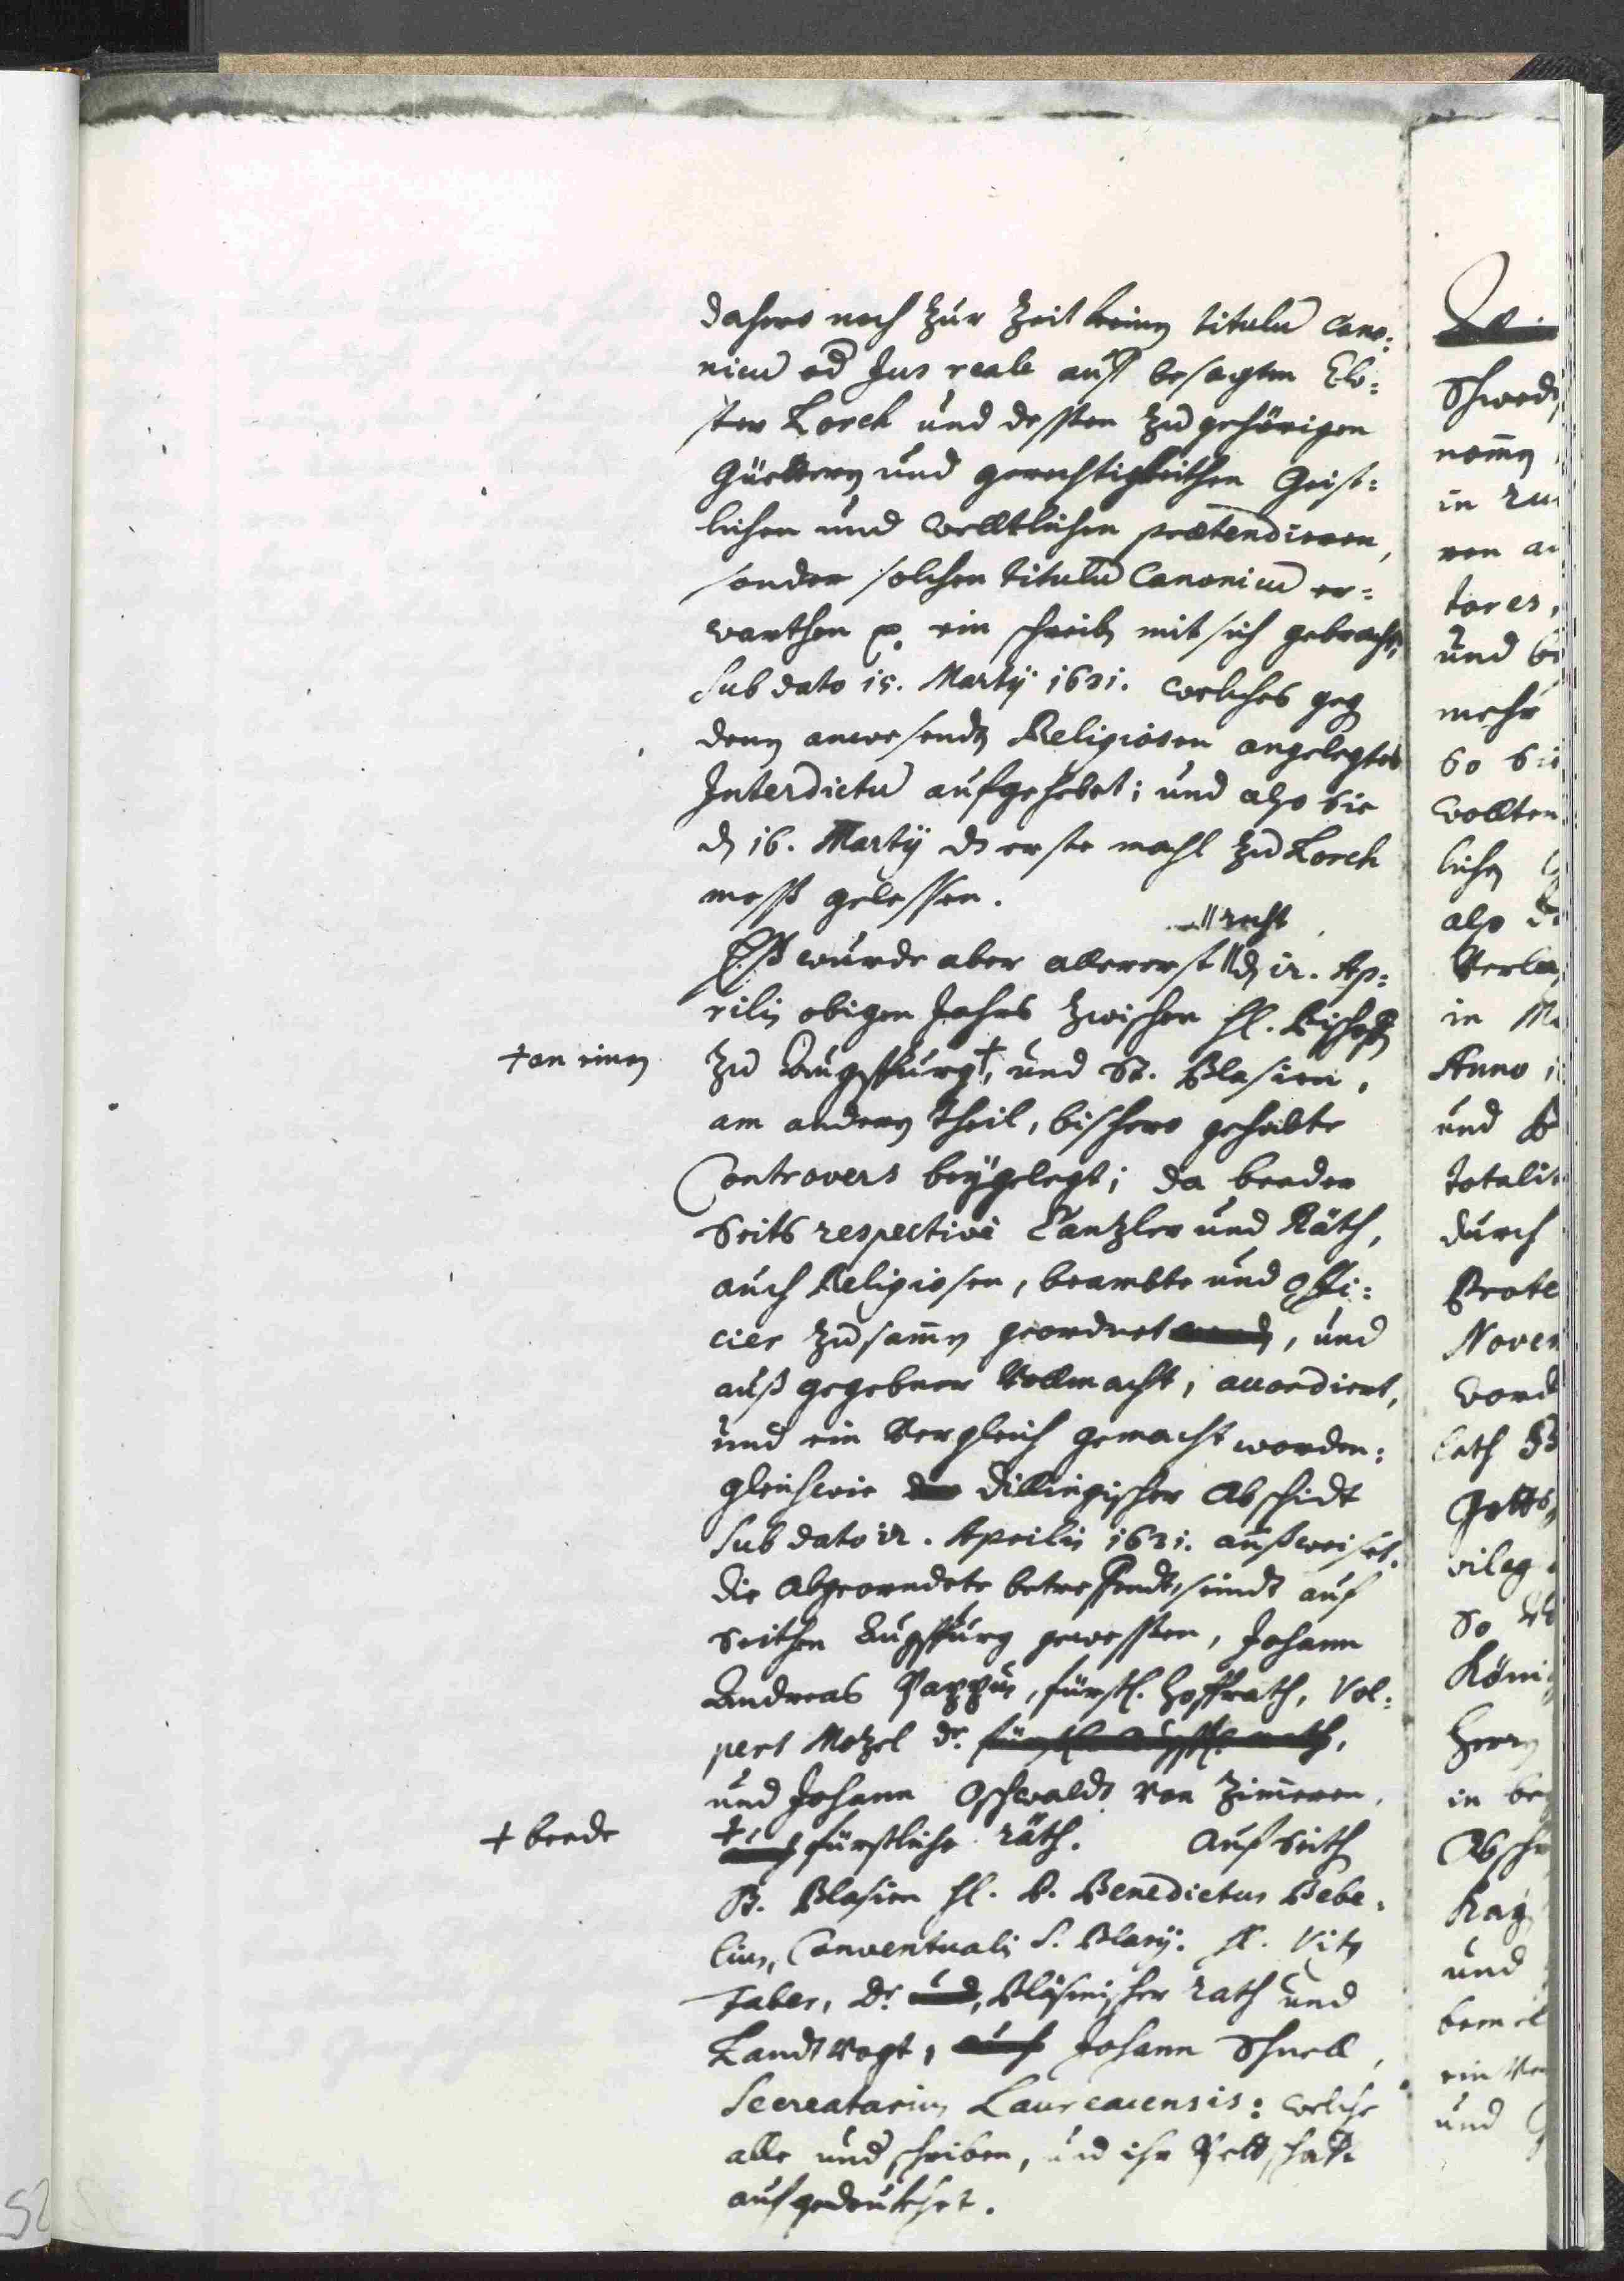 dahero noch zur Zeit keinen titulum cano:
nicum od Jus reale auff besagtem Clo:
ster Lorch und dessen zu gehörigen
Güetteren und gerechtigkeithen Geist:
lichen und welltlichen prætendieren,
sonder solchen titulum Canonicum er:
warthen p. ein schreiben mit sich gebracht,
sub dato 15. Martij 1631. welches geg
denen anwesenden Religiosen angelegtes
Interdictum aufgehebt; und also sie
den 16. Martij ds erste mahl zu Lorch
mess gelessen.
|| recht
Ess wurde aber allererst || den 12. Ap:
rilis obigen Jahrs zwischen Hl. Bischoffen
+ an einem
zu Augspurg +, und St. Blasien,
am anderen theil, bishero gehabte
Controvers beygelegt; da beeder
Seits respective Cantzler und Räth,
auch Religiosen, beambte und Offi:
cier zusamen geordnet, und
auß gegebner Vollmacht, accordiert,
und ein Vergleich gemacht worden:
gleichwie Dillingischer Abschidt
sub dato 12. Aprilis 1631. außweiset.
die Abgeorndete betreffendt, sindt auf
Seithen Augspurg gewessen, Johann
Andreas Pappus, fürstl. Hoffrath, Vol:
pert Motzel Dr.
und Johann Oschwaldt von Zimeren,
+ beede
+ fürstliche räth. Auf Seith
St. Blasien Hl. P. Benedictus Bebe:
lius, Conventualis S. Blasij. H. Vitus
Faber, Dr. Bläsmischer rath und
Landt Vogt, Johann Schnell,
Secreatarius Laureacensis: welche
alle underschriben, und ihr Pettschafft
aufgedrukhet.
Schwed
in
tores,
und
mehr
so
wollten
also
in
Anno
und
durch
Novem
Gotts
so
in
und
und
52